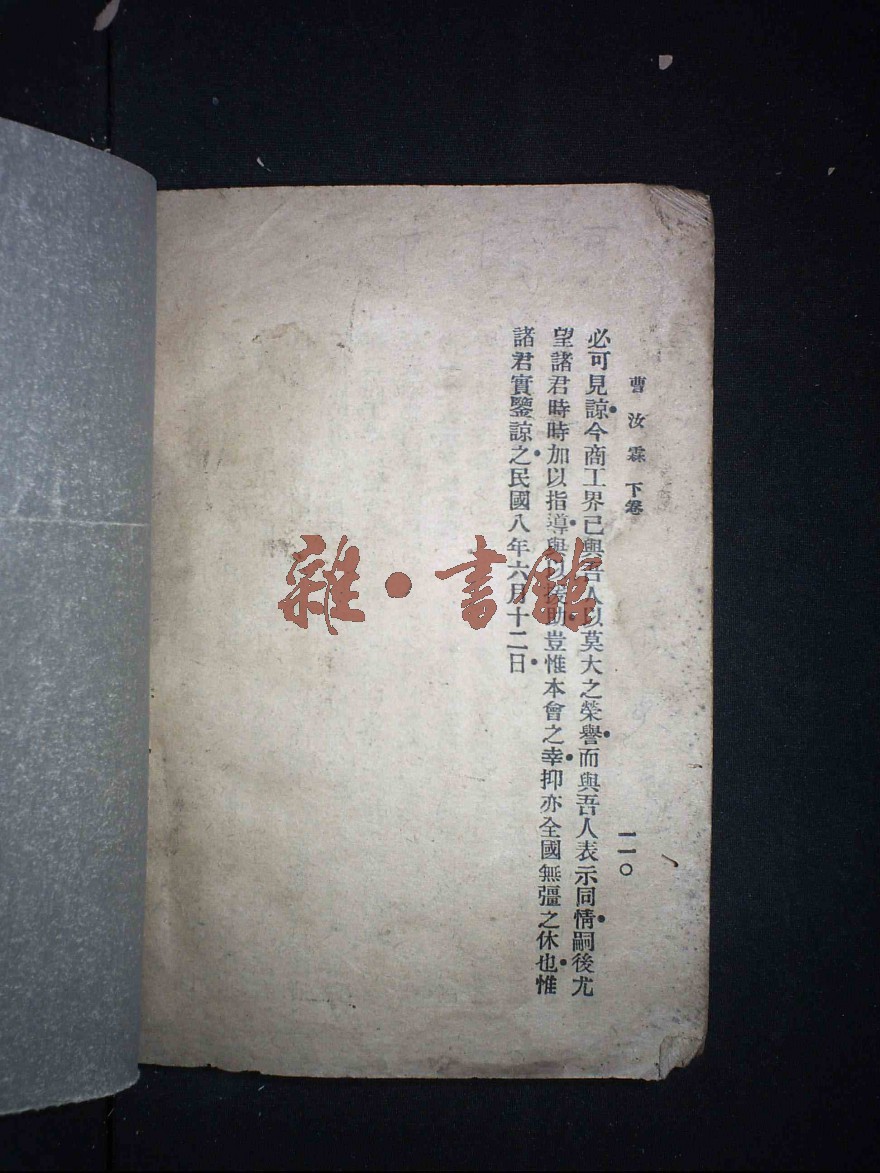 曹汝霖 下卷 一一〇
必可見諒•今商工界已與吾人以莫大之榮譽•而與吾人表示同情•嗣後尤
望諸君時時加以指導•與以援助•豈惟本會之幸•抑亦全國無彊之休也•惟
諸君實鑒諒之•民國八年六月十二日•
雜•書館